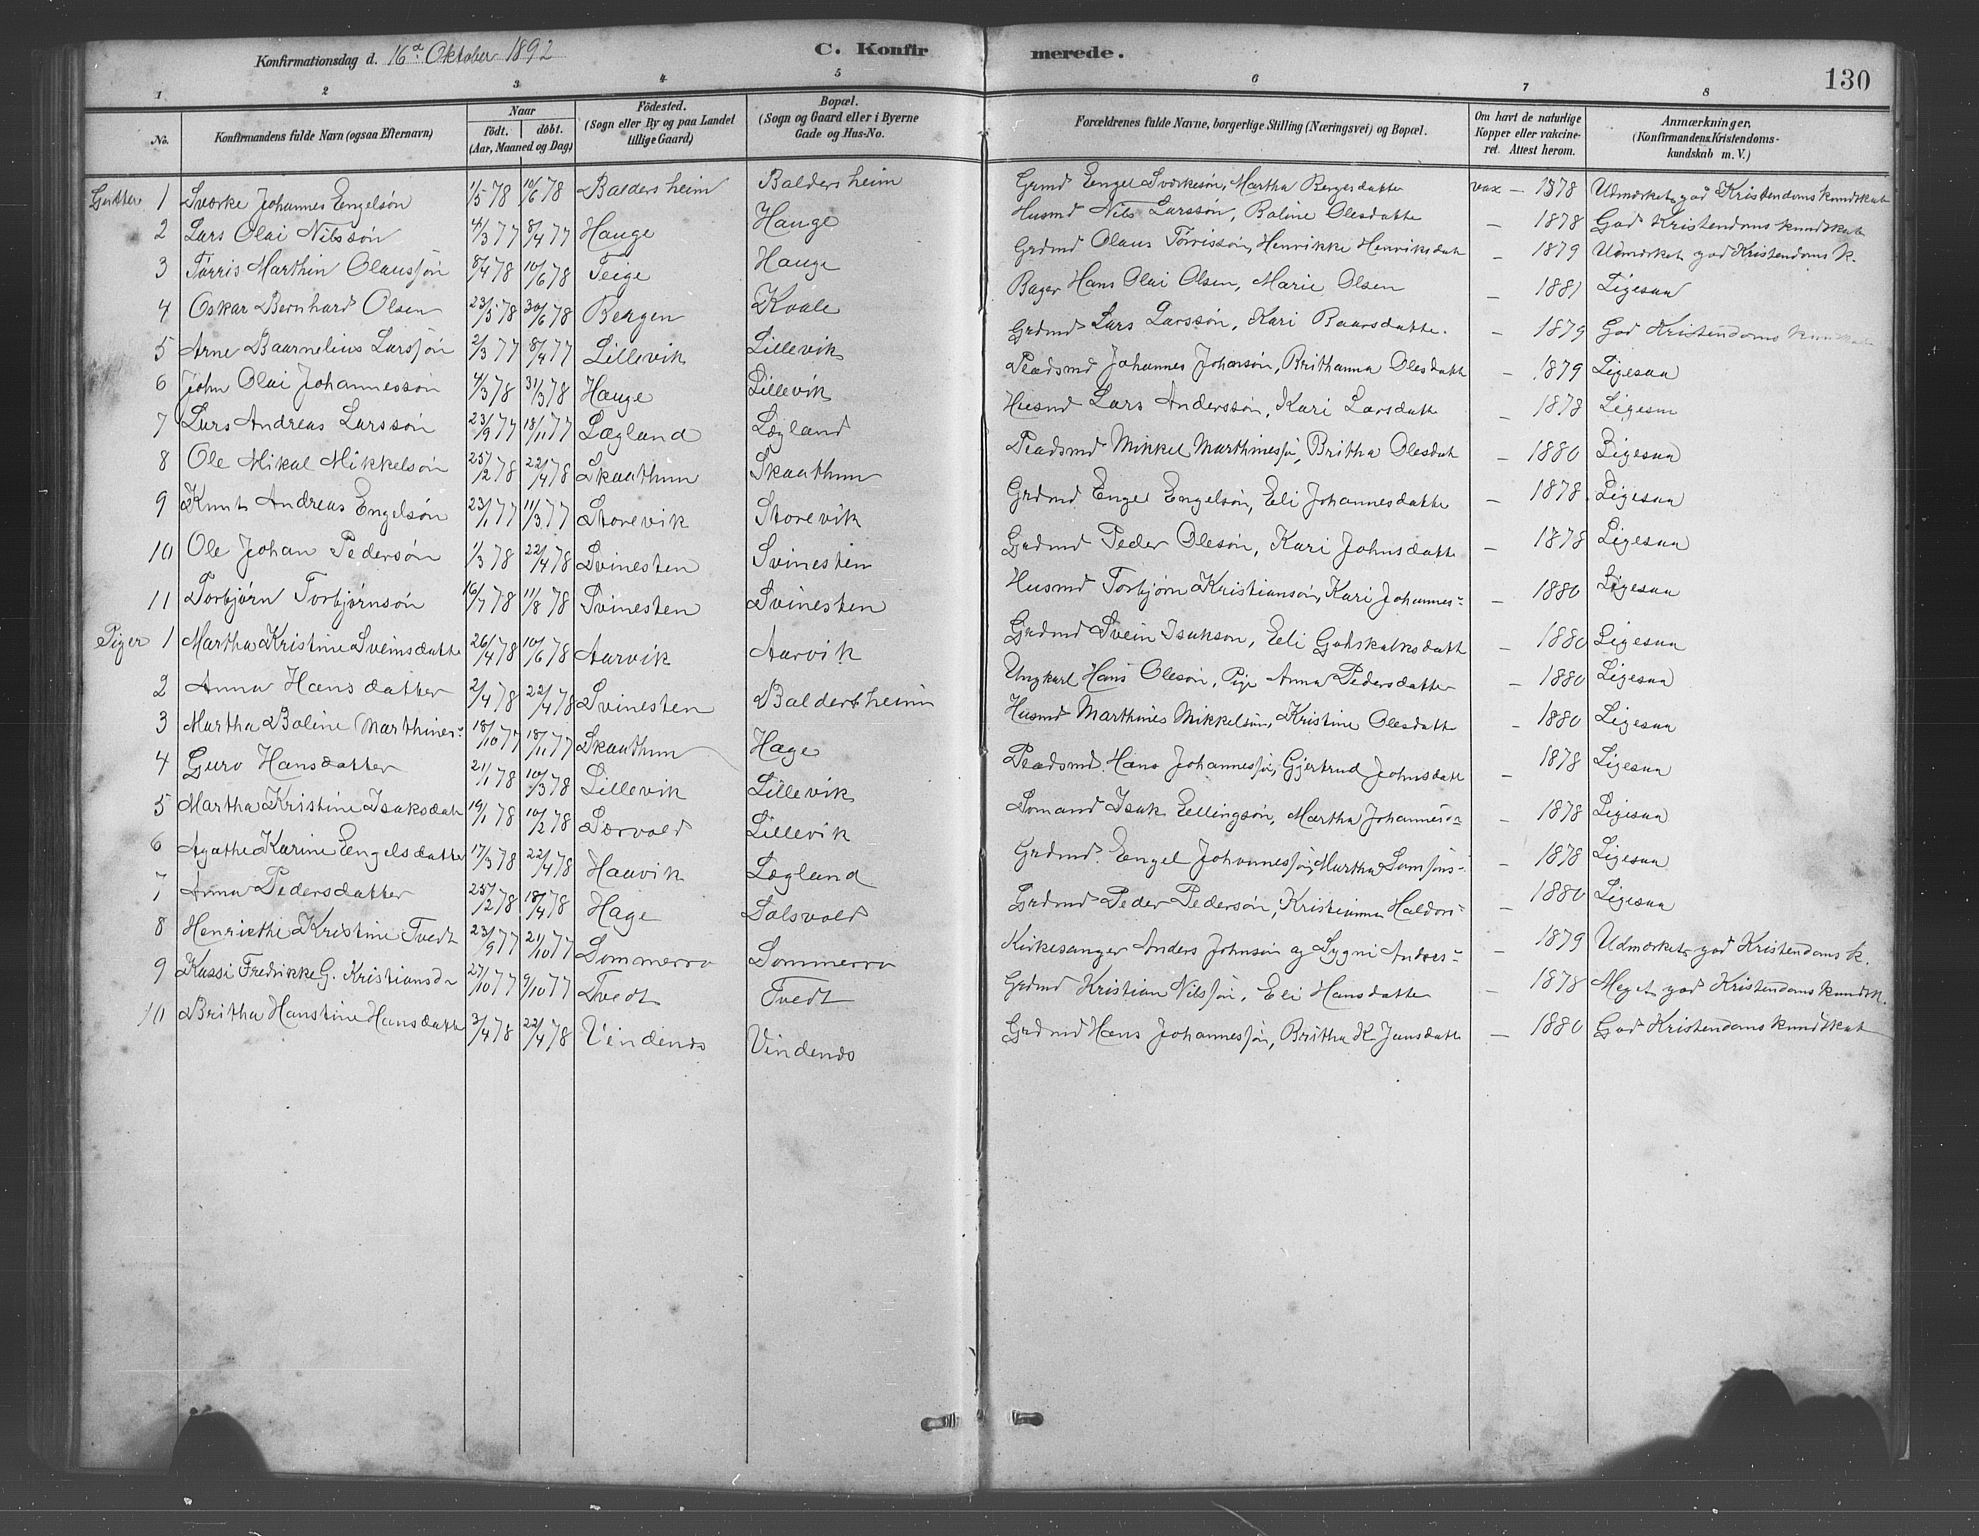 Konfirmationsdag d. 16de Oktober 1892
C. Konfirmerede.
130
1 2 3 4 5 6 7 8
No.
Konfirmandens fulde Navn (ogsaa Efternavn)
Naar
født. døbt.
(Aar, Maaned og Dag)
Fødested.
(Sogn eller By og paa Landet
tillige Gaard)
Bopæl.
(Sogn og Gaard eller i Byerne
Gade og Hus-No.
Forældrenes fulde Navne, borgerlige Stilling (Næringsvei) og Bopæl.
Om havt de naturlige
Kopper eller vakcine-
ret. Attest herom.
Anmærkninger,
(Konfirmandens Kristendoms-
kundskab m. V.)
Gutter 1 Sværke Johannes Engelsøn 1/5 78 10/6 78 Baldersheim Baldersheim Grmd Engel Sværkesøn, Martha Bergesdatter vax — 1878 Udmærket god Kristendomskundskab
2 Lars Olai Nilssøn 4/3 77 8/4 77 Hauge Hauge Husmd Nils Larssøn, Boline Olesdatte — 1878 God Kristendomskundskab
3 Torris Marthin Olaussøn 8/4 78 10/6 78 Teige Hauge Grdmd Olaus Torrissøn, Henrikke Henriksdat — 1879 Udmærket god Kristendoms k.
4 Oskar Bernhard Olsen 23/5 78 30/6 78 Bergen Kvale Bager Hans Olai Olsen, Marie Olsen — 1881 Ligesaa
5 Arne Baarnelius Larssøn 2/3 77 8/4 77 Lillevik Lillevik Grdmd Lars Larssøn, Kari Baarsdatte. — 1879 God Kristendomskundskab
6 John Olai Johannessøn 4/3 78 31/3 78 Hauge Lillevik Pladsmd Johannes Johansøn, Brithanna Olesdatt — 1879 Ligesaa
7 Lars Andreas Larssøn 23/9 77 18/11 77 Lægland Lægland Husmd Lars Anderssøn, Kari Larsdatte — 1878 Ligesaa
8 Ole Mikal Mikkelsøn 25/2 78 22/4 78 Skaathun Skaathun Pladsmd Mikkel Marthinessø, Britha Olesdat — 1880 Ligesaa
9 Knut Andreas Engelsøn 23/1 77 11/3 77 Storevik Storevik Grdmd Engel Engelsøn, Eli Johannesdatte — 1878 Ligesaa
10 Ole Johan Pedersøn 1/3 78 22/4 78 Svinesten Svinesten Grdmd Peder Olesøn, Kari Johnsdatte — 1878 Ligesaa
11 Torbjørn Torbjørnsøn 16/7 78 11/8 78 Svinesten Svinesten Husmd Torbjørn Kristiansøn, Kari Johannes- — 1880 Ligesaa
Piger 1 Martha Kristine Sveinsdatte 26/4 78 10/6 78 Aarvik Aarvik Grdmd Svein Isaksøn, Eli Gotskalksdatt — 1880 Ligesaa
2 Anna Hansdatter 2/4 78 22/4 78 Svinesten Baldersheim Ungkarl Hans Olesøn, Pige Anna Pedersdatter — 1880 Ligesaa
3 Martha Boline Marthines- 18/10 77 18/11 77 Skaathun Hage Husmd Marthines Mikkelsøn, Kristine Olesdatte — 1880 Ligesaa
4 Guro Hansdatter 21/1 78 10/3 78 Lillevik Lillevik Pladsmd. Hans Johannessø, Gjertrud Johnsdatt — 1878 Ligesaa
5 Martha Kristine Isaksdatt 19/1 78 10/2 78 Sørvold Lillevik Isak Ellingsøn, Martha Johannes- — 1878 Ligesaa
6 Agathe Karine Engelsdatter 17/3 78 22/4 78 Haavik Lægland Grdmd. Engel Johannessø, Martha Samsøns- — 1878 Ligesaa
7 Anna Pedersdatter 25/2 78 18/4 78 Hage Grdmd Peder Pedersøn, Kristianna Haldors- — 1880 Ligesaa
8 Henriethe Kristine Tvedt 23/9 77 21/10 77 Sommerro Sommerro Kirkesanger Anders Johnsøn og Sygni Anders- — 1879 Udmærket god Kristendoms k.
9 Fredrikke G. Kristiansda 27/10 77 9/10 77 Tvedt Tvedt Grdmd Kristian Nilssøn, Eli Hansdatter — 1878 Meget god Kristendomskundsk.
10 Britha Hanstine Hansdatter 3/4 78 22/4 78 Vindenes Vindenes Grdmd Hans Johannessøn, Britha K. Jansdatt — 1880 God Kristendomskundskab